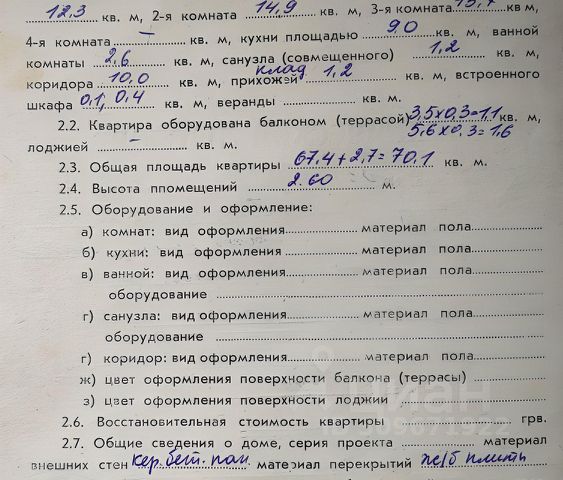 12,3 кв. м, 2-я комната 14,9 кв. м, 3-я комната кв м,
4-я комната – кв. м, кухни площадью 9,0 кв. м, ванной
комнаты 2,6 кв. м, санузла (совмещенного) 1,2 кв. м,
коридора 10,0 кв. м, прихожей клад 1,2 кв. м, встроенного
шкафа 0,1, 0,4 кв. м, веранды кв. м.
2.2. Квартира оборудована балконом (террасой) 3,5х0,3=1,1 кв. м,
5,6х0,3=1,6
лоджией – кв. м.
2.3. Общая площадь квартиры 67.4+2,7=70.1 кв. м.
2.4. Высота ппомещений 2.60 м.
2.5. Оборудование и оформление:
а) комнат: вид оформления материал пола
б) кухни: вид оформления материал пола
в) ванной: вид оформления материал пола
оборудование
г) санузла: вид оформления материал пола
оборудование
г) коридор: вид оформления материал пола
ж) цвет оформления поверхности балкона (террасы)
з) цвет оформления поверхности лоджии
2.6. Восстановительная стоимость квартиры грн.
2.7. Общие сведения о доме, серия проекта материал
внешних стен кер. бет. пан. материал перекрытий ж/б плиты
циан